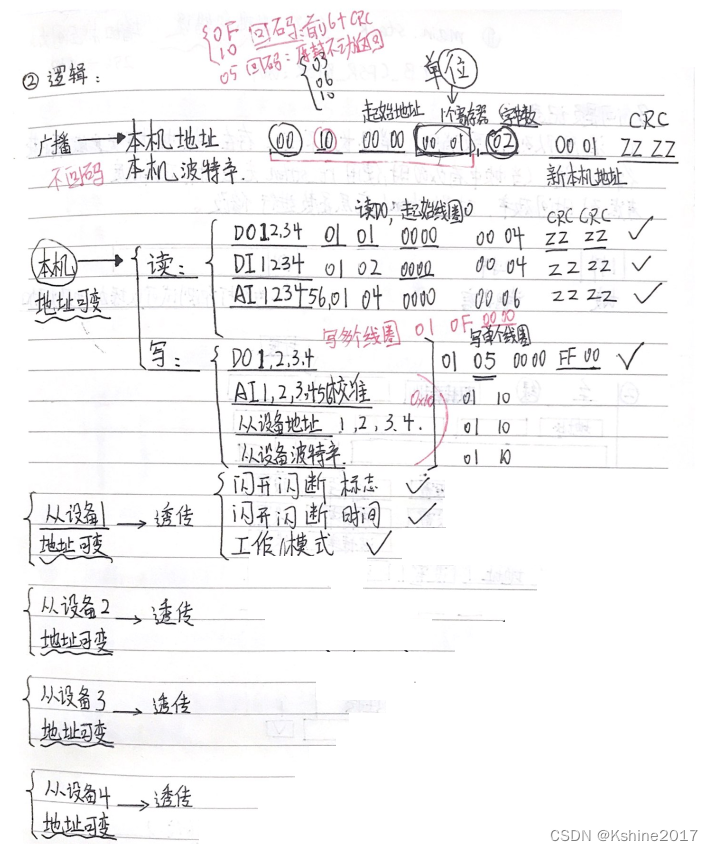 0F 回码:前6+CRC
10
05 回码:原封不动
03
06
10
单位
② 逻辑:
起始地址 1个寄存器 字节数
CRC
广播 → 本机地址 00 10 00 00 00 01 02 00 01 ZZ ZZ
不回码 本机波特率. 新本机地址
读DO,起始线圈0
CRC CRC
本机 → 读: DO1234 01 01 0000 00 04 ZZ ZZ ✓
DI1234 01 02 0000 00 04 ZZ ZZ ✓
地址可变 AI123456, 01 04 0000 00 06 ZZ ZZ ✓
写多个线圈 01 0F 00 00
写单个线圈
写: DO1,2,3.4 01 05 0000 FF 00 ✓
AI1,2,3.456校准 0x10 01 10
从从设备地址 1,2,3.4. 01 10
从设备波特率. 01 10
闪开闪断 标志 ✓
从设备1 → 透传 闪开闪断 时间 ✓
地址可变 工作模式 ✓
从设备2 → 透传
地址可变
从设备3 → 透传
地址可变
从设备4 → 透传
地址可变
CSDN @Kshine2017